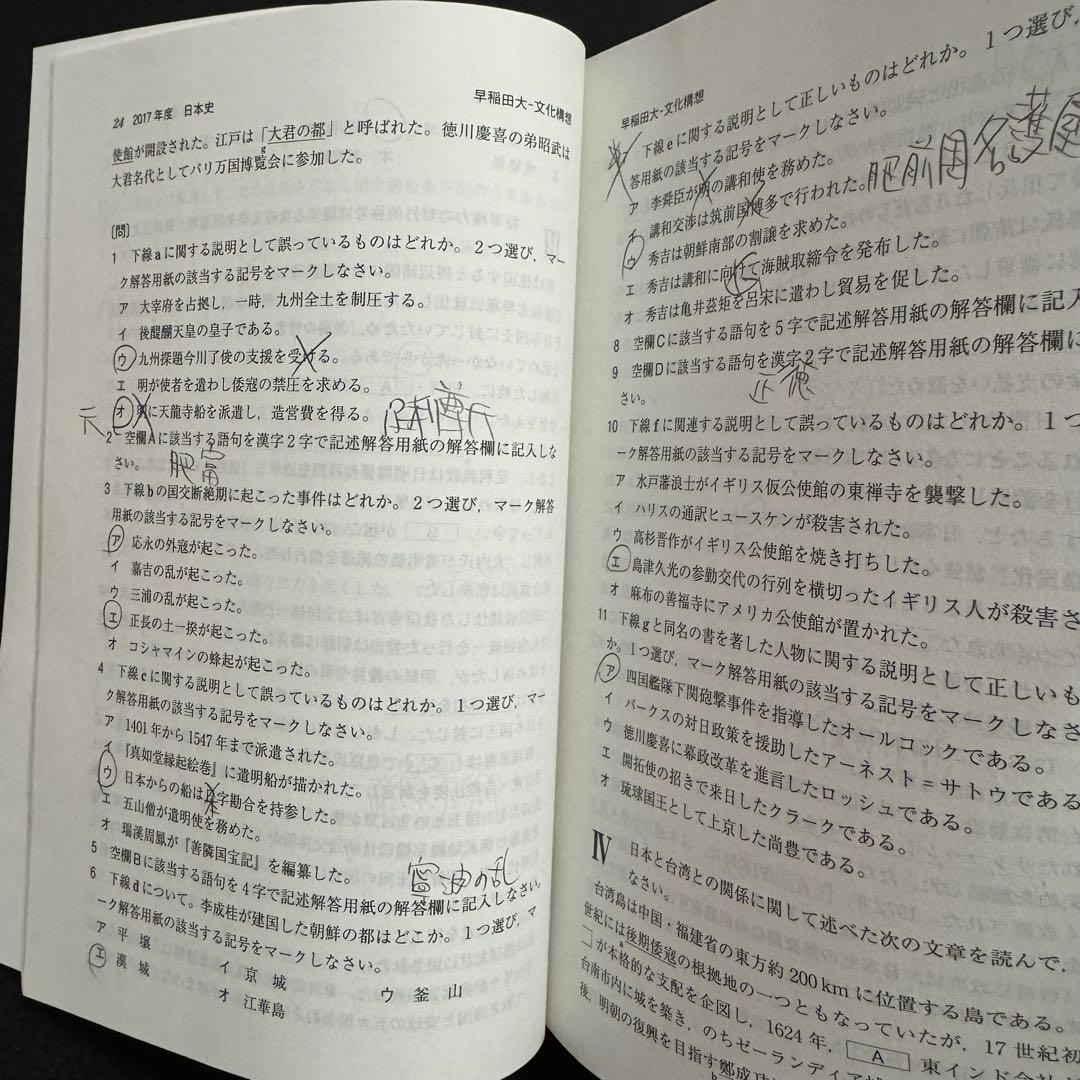 24 2017年度 日本史 早稲田大-文化構想
使館が開設された。江戸は「大君の都」と呼ばれた。徳川慶喜の弟昭武は
g
大君名代としてパリ万国博覧会に参加した。
[問]
1 下線aに関する説明として誤っているものはどれか。2つ選び，マー
ク解答用紙の該当する記号をマークしなさい。
ア 大宰府を占拠し，一時，九州全土を制圧する。
イ 後醍醐天皇の皇子である。
ウ 九州探題今川了俊の支援を受ける。
エ 明が使者を遣わし倭寇の禁圧を求める。
オ 明に天龍寺船を派遣し，造営費を得る。 足利尊氏
天
2 空欄Aに該当する語句を漢字2字で記述解答用紙の解答欄に記入しな
さい。 肥富
3 下線bの国交断絶期に起こった事件はどれか。2つ選び，マーク解答
用紙の該当する記号をマークしなさい。
ア 応永の外寇が起こった。
イ 嘉吉の乱が起こった。
ウ 三浦の乱が起こった。
エ 正長の土一揆が起こった。
オ コシャマインの蜂起が起こった。
4 下線cに関する説明として誤っているものはどれか。1つ選び，マー
ク解答用紙の該当する記号をマークしなさい。
ア 1401年から1547年まで派遣された。
イ 『真如堂縁起絵巻』に遣明船が描かれた。
ウ 日本からの船は字勘合を持参した。
本
エ 五山僧が遣明使を務めた。
オ 瑞渓周鳳が『善隣国宝記』を編纂した。
寧波の乱
5 空欄Bに該当する語句を4字で記述解答用紙の解答欄に記入しなさい。
6 下線dについて。李成桂が建国した朝鮮の都はどこか。1つ選び，マ
ーク解答用紙の該当する記号をマークしなさい。
ア 平壌 イ 京城 ウ 釜山
エ 漢城 オ 江華島
早稲田大-文化構想
下線eに関する説明として正しいものはどれか。1つ選び，
答用紙の該当する記号をマークしなさい。
ア 李舜臣が明の講和使を務めた。
イ 講和交渉は筑前国博多で行われた。 肥前国名護屋
ウ 秀吉は朝鮮南部の割譲を求めた。
エ 秀吉は講和に向けて海賊取締令を発布した。
オ 秀吉は亀井茲矩を呂宋に遣わし貿易を促した。
8 空欄Cに該当する語句を5字で記述解答用紙の解答欄に記入
9 空欄Dに該当する語句を漢字2字で記述解答用紙の解答欄に
さい。 正徳
10 下線fに関連する説明として誤っているものはどれか。1つ
ーク解答用紙の該当する記号をマークしなさい。
ア 水戸藩浪士がイギリス仮公使館の東禅寺を襲撃した。
イ ハリスの通訳ヒュースケンが殺害された。
ウ 高杉晋作がイギリス公使館を焼き打ちした。
エ 島津久光の参勤交代の行列を横切ったイギリス人が殺害さ
オ 麻布の善福寺にアメリカ公使館が置かれた。
11 下線gと同名の書を著した人物に関する説明として正しいも
か。1つ選び，マーク解答用紙の該当する記号をマークしなさ
ア 四国艦隊下関砲撃事件を指導したオールコックである。
イ パークスの対日政策を援助したアーネスト＝サトウである
ウ 徳川慶喜に幕政改革を進言したロッシュである。
エ 開拓使の招きで来日したクラークである。
オ 琉球国王として上京した尚豊である。
IV 日本と台湾との関係に関して述べた次の文章を読んで，
なさい。
台湾島は中国・福建省の東方約200kmに位置する島である。
世紀には後期倭寇の根拠地の一つともなっていたが，17世紀初
a
が本格的な支配を企図し，1624年， A 東インド会社
台南市内に城を築き，のちゼーランディア
後，明朝の復興を目指す鄭成功
b